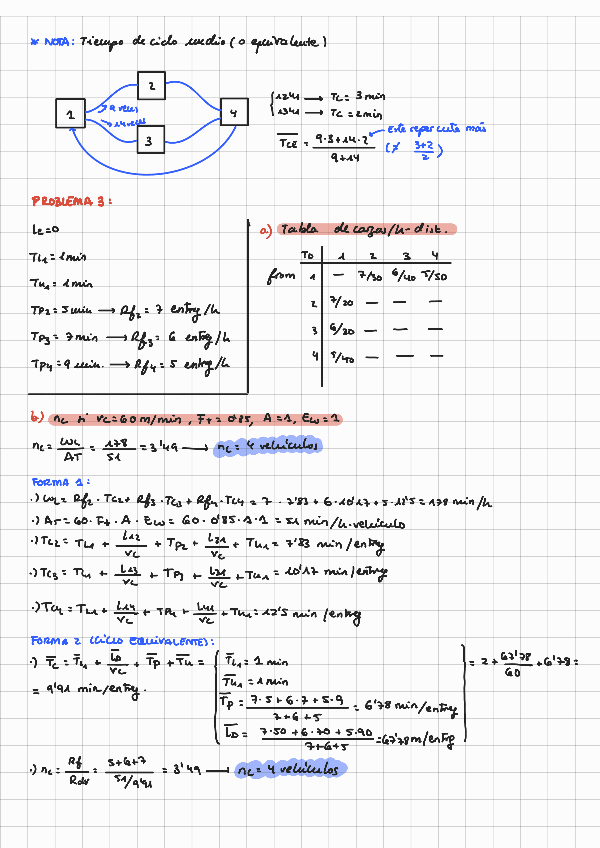 * NOTA: Tiempo de ciclo medio (o equivalente)
2
1
9 veces
14 veces
4
3
1241 → Tc = 3 min
1341 → Tc = 2 min
TCE = (9·3+14·2)/(9+14)
Este repercute más
(≠ (3+2)/2)
PROBLEMA 3:
Le=0
TL1 = 1 min
Tu1 = 1 min
TP2 = 5 min → Rf2 = 7 entreg/h
TP3 = 7 min → Rf3 = 6 entreg/h
TP4 = 9 min. → Rf4 = 5 entreg/h
a) Tabla de cargas/h-dist.
TO 1 2 3 4
from 1 — 7/30 6/40 5/50
2 7/20 — — —
3 6/30 — — —
4 5/40 — — —
b.) nc si vc = 60 m/min, Ft = 0'85, A = 1, Ew = 1
nc = WL/AT = 178/51 = 3'49 → nc = 4 vehículos
FORMA 1:
·) WL = Rf2 · TC2 + Rf3 · TC3 + Rf4 · TC4 = 7 · 7'83 + 6 · 10'17 + 5 · 12'5 = 178 min/h
·) AT = 60 · Ft · A · Ew = 60 · 0'85 · 1 · 1 = 51 min/h·vehículo
·) TC2 = TL1 + L12/vc + TP2 + L21/vc + Tu1 = 7'83 min/entreg
·) TC3 = TL1 + L13/vc + TP3 + L31/vc + Tu1 = 10'17 min/entreg
·) TC4 = TL1 + L14/vc + TP4 + L41/vc + Tu1 = 12'5 min/entreg
FORMA 2 (CICLO EQUIVALENTE):
·) Tc = TL1 + LD/vc + TP + Tu =
= 9'91 min/entreg.
TL1 = 1 min
Tu1 = 1 min
TP = (7·5+6·7+5·9)/(7+6+5) = 6'78 min/entreg
LD = (7·50+6·70+5·90)/(7+6+5) = 67'78 m/entreg
= 2 + 67'78/60 + 6'78 =
·) nc = Rf/Rdv = (5+6+7)/(51/9'91) = 3'49 → nc = 4 vehículos